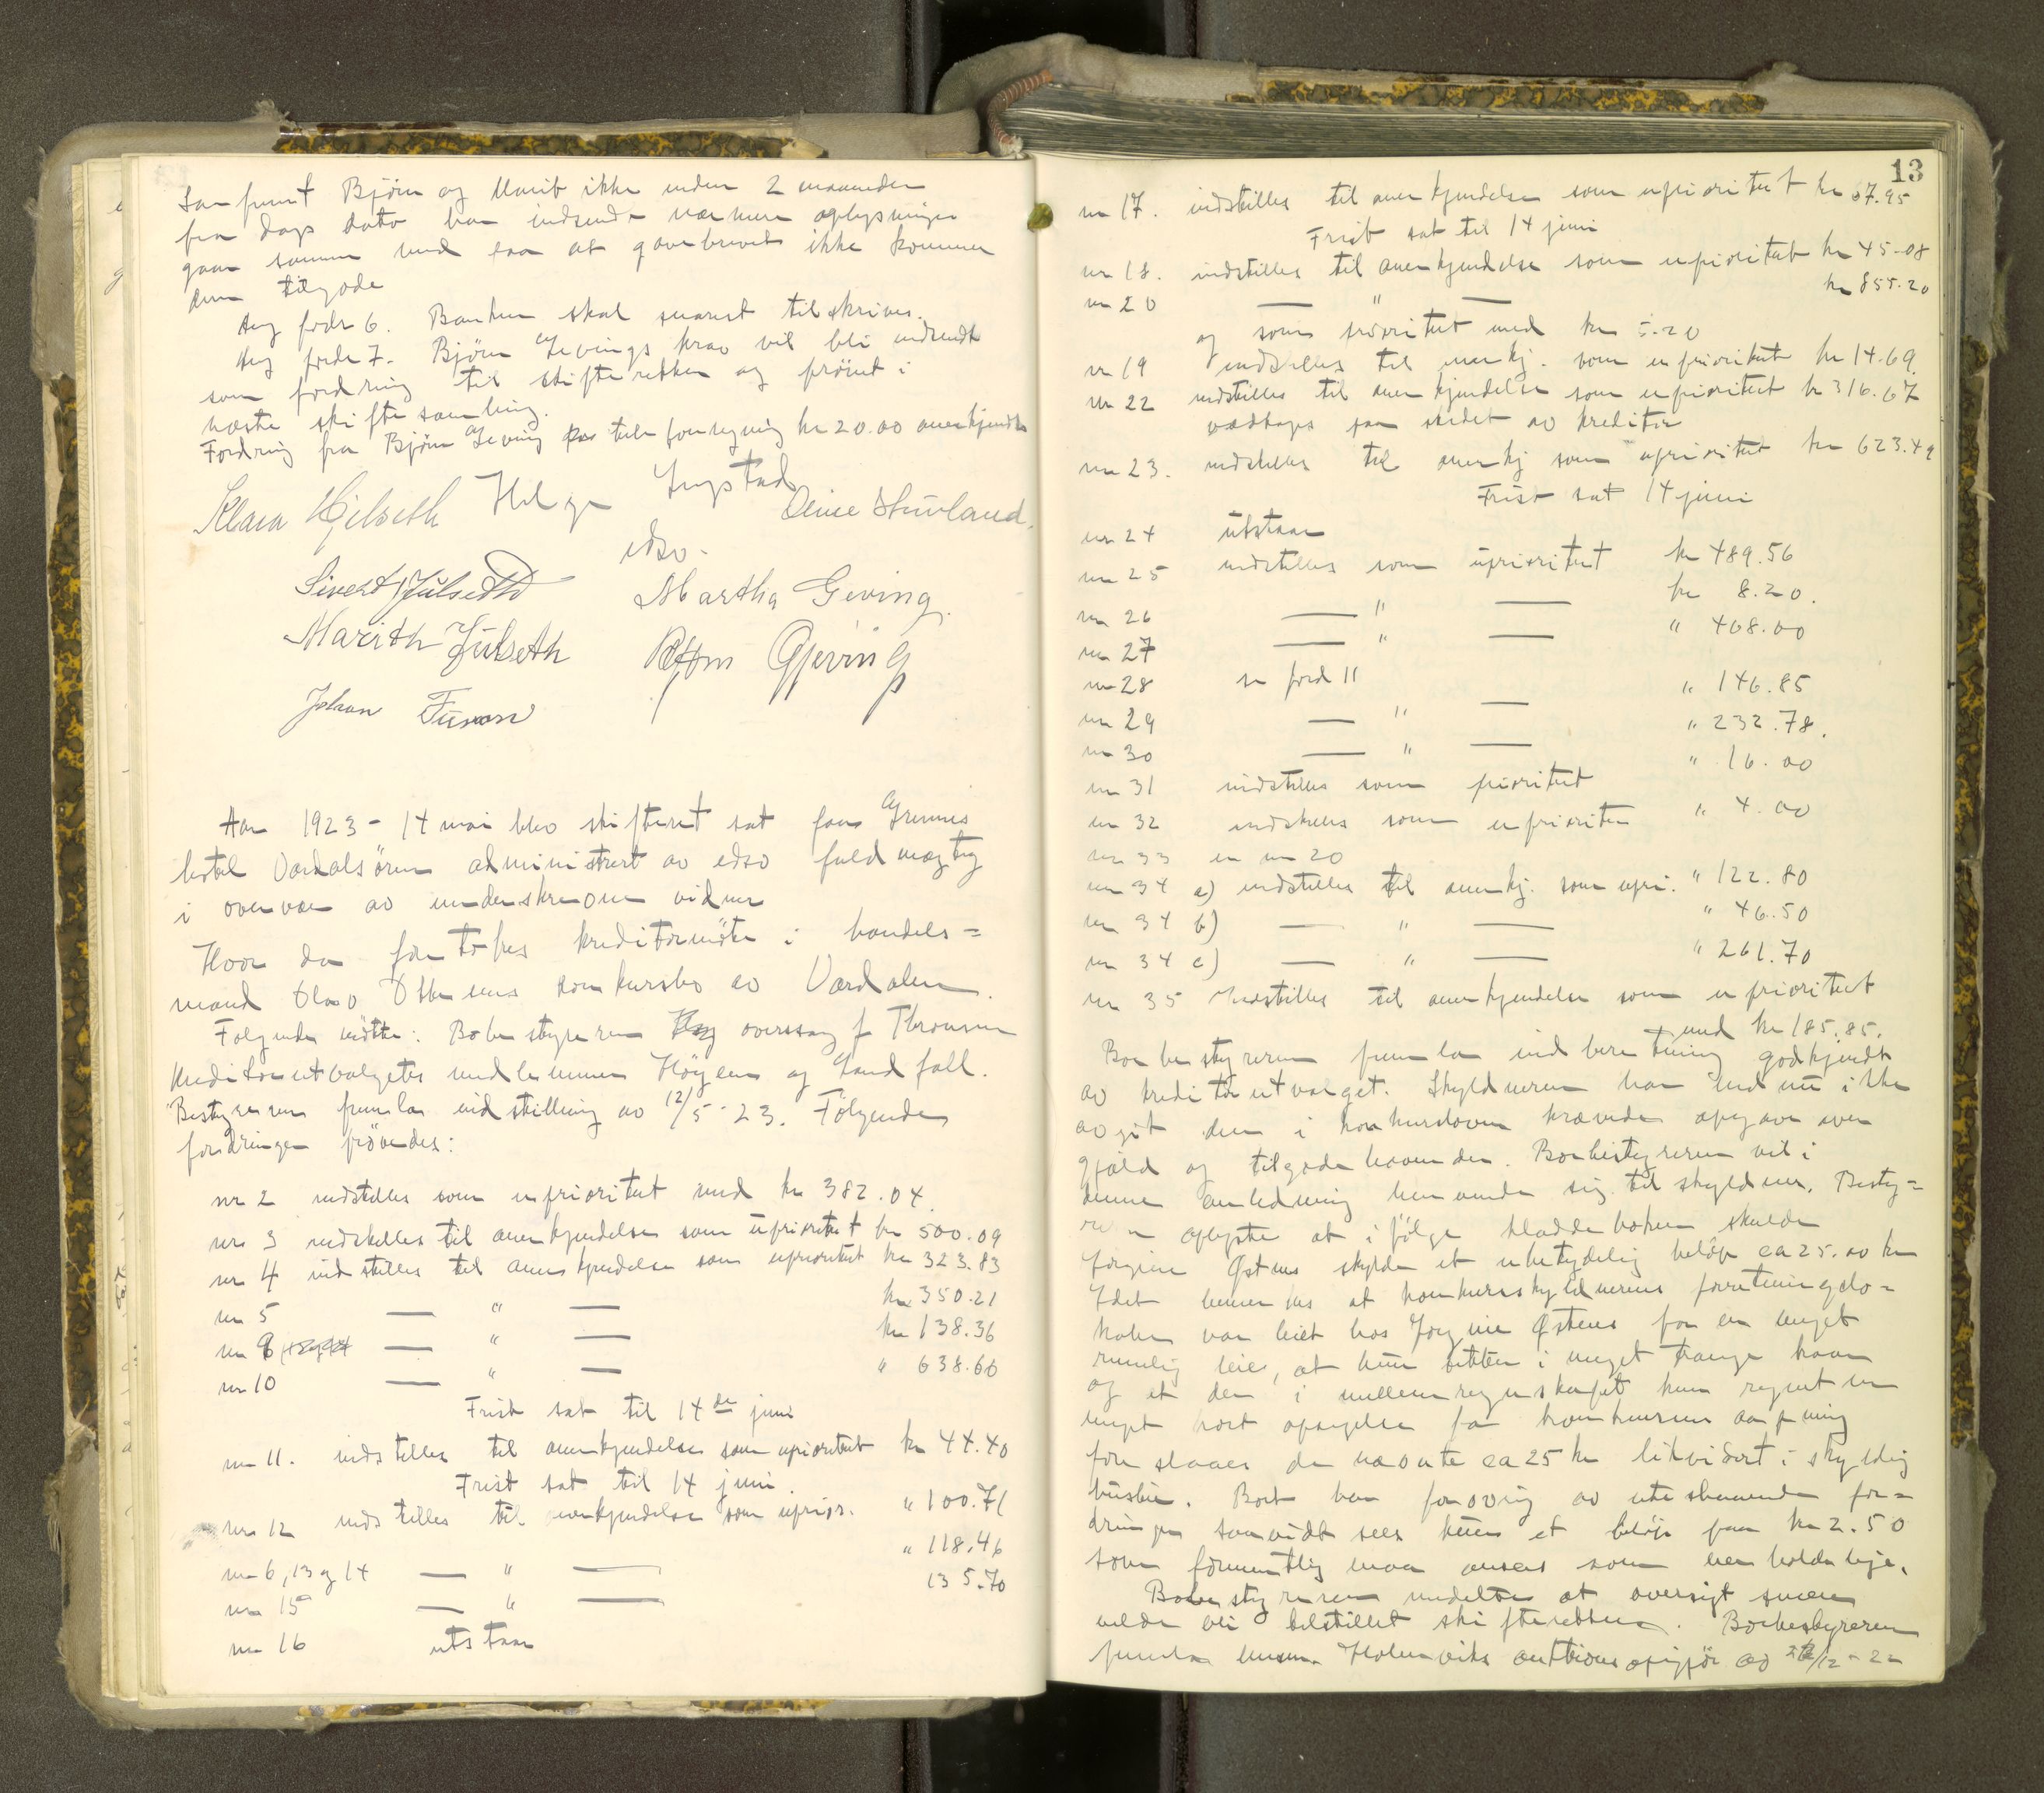 Saafremt Bjørn og Marit ikke inden 2 maaneder
fra dags dato har indsendt nærmere oplysninger
gaar samme ind saa at gavebrevet ikke kommer
dem tilgode
Ang fordr 6. Banken skal snarest tilskrives.
Ang fordr 7. Bjørn Gevings krav vil bli indsendt
som fordring til skifteretten og prövet i
næste skiftesamling.
Fordring fra Bjørn Geving paa telefonregning kr 20.00 anerkjendt
Klara Hjelseth Helge Ingstad Oline Stuvland
edsv.
Sivert Julseth Martha Geving
Marith Julseth Björn Gjeving
Johan
Aar 1923 - 14 mai blev skifteret sat paa Grennes
hotel Værdalsören administrert av edsv fuldmægtig
i overvær av underskrevne vidner
Hvor da foretokes kreditormöte i handels=
mand Olav Östnes konkursbo av Værdalen.
Følgende mötte: Bobestyreren overrsagf Thronsen
Kreditorutvalgets medlemmer Höyem og Landfall.
Bestyreren fremla indstilling av 12/5-23. Følgende
fordringer prövedes:
nr 2 indstilles som uprioritert med kr 382.04.
nr 3 indstilles til anerkjendelse som uprioritert kr 500.09
nr 4 indstilles til anerkjendelse som uprioritert kr 323.83
nr 5 — " — kr 350.21
nr 9 — " — kr 138.36
nr 10 — " — " 638.60
Frist sat til 14de juni
nr 11. indstilles til anerkjendelse som uprioritert kr 44.40
Frist sat til 14 juni.
nr 12 indstilles til anerkjendelse som uprior. " 100.71
nr 6, 13 og 14 — " — " 118.46
nr 15 — " — 135.70
nr 16 utstaar
13
nr 17. indstilles til anerkjendelse som uprioritert kr 67.95
Frist sat til 14 juni
nr 18. indstilles til anerkjendelse som uprioritert kr 45.08
nr 20 — " — kr 855.20
og som prioritert med kr 5.20
nr 19 indstilles til anerkj. som uprioritert kr 14.69
nr 22 indstilles til anerkjendelse som uprioritert kr 316.67
vedtages paa stedet av kreditor
nr 23. indstilles til anerkj som uprioritert kr 623.49
Frist sat 14 juni
nr 24 utstaar
nr 25 indstilles som uprioritert kr 489.56
nr 26 — " — kr 8.20.
nr 27 — " — " 408.00
nr 28 se ford 11
nr 29 — " — " 146.85
nr 30 — " — " 232.78.
nr 31 indstilles som prioritert " 16.00
nr 32 indstilles som uprioritert " 4.00
nr 33 se nr 20
nr 34 a) indstilles til anerkj. som upri. " 122.80
nr 34 b) — " — " 46.50
nr 34 c) — " — " 261.70
nr 35 Indstilles til anerkjendelse som uprioritert
med kr 185.85.
Bobestyreren fremla indberetning godkjendt
av kreditorutvalget. Skyldneren har endnu ikke
avgit den i konkursloven krævede opgave over
gjæld og tilgodehavender. Bobestyreren vil i
denne anledning henvende sig til skyldner. Besty=
reren oplyste at ifølge kladdeboken skulde
Jörgine Østnes skylde et ubetydelig beløp ca 25.00 kr
Idet bemerkes at konkursskyldnerens forretningslo=
kaler var leiet hos Jörgine Østnes for en meget
rimelig leie, at hun sitter i meget trange kaar
og at der i mellemregnskapet kun regnet en
meget kort opsigelse fra konkursens aapning
foreslaaes de nævnte ca 25 kr likvidert i skyldig
husleie. Boet har forøvrig av utestaaende for=
dringer saavidt sees kun et beløp paa kr 2.50
som formentlig maa ansees som uerholdelige.
Bobestyreren meddelte at oversigt snarest
vilde bli tilstillet skifteretten. Bobestyreren
fremla lensm. Holmviks auktionsopgjör av /12-22